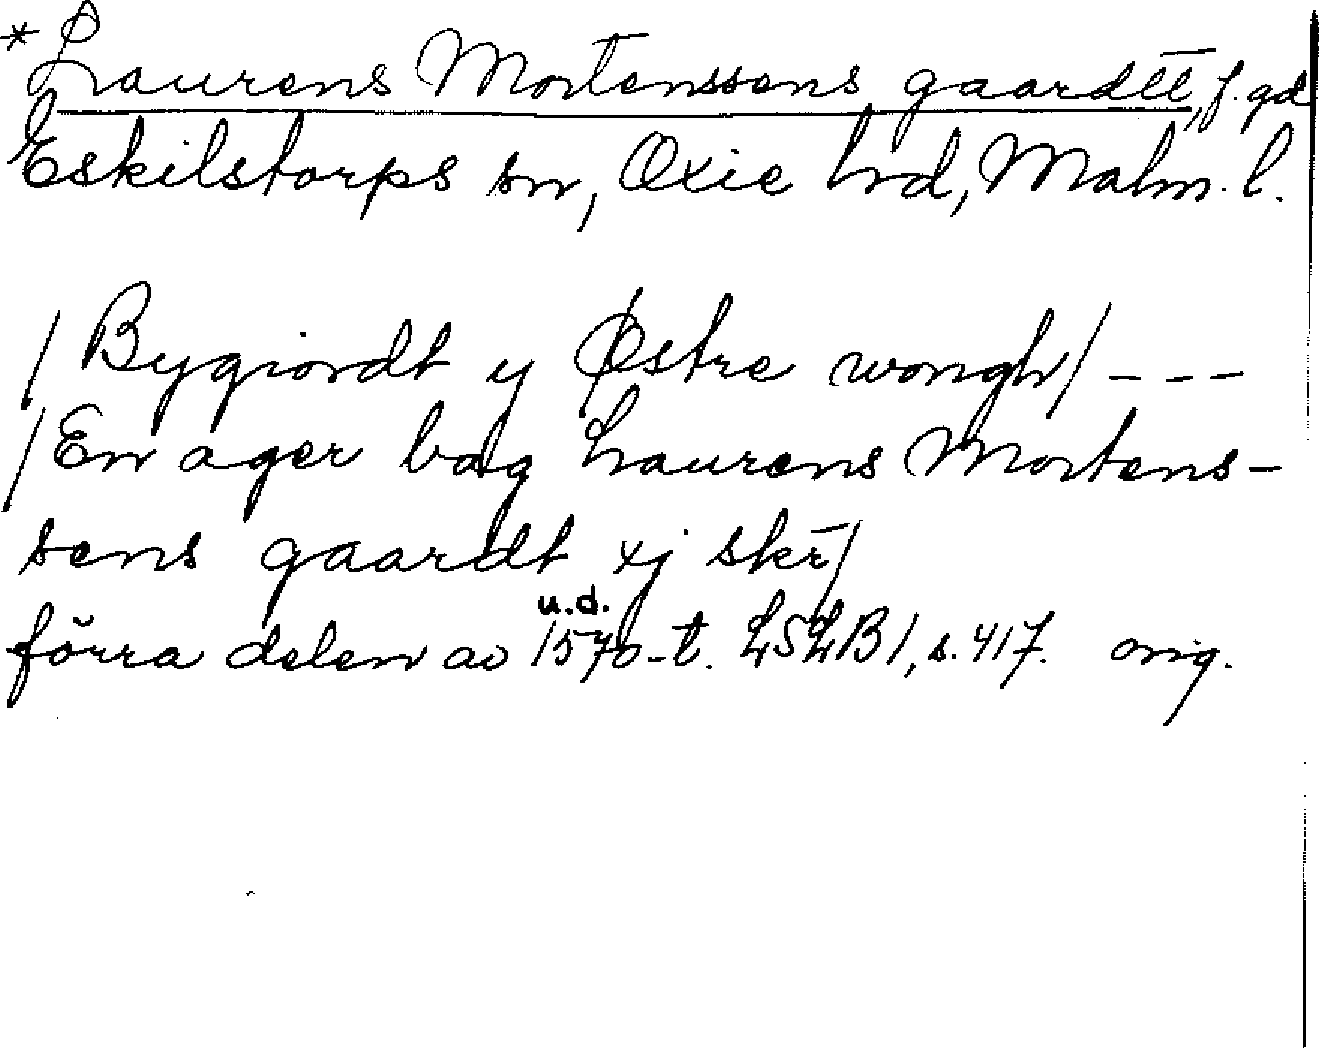 *Laurens Mortenssens gaardtt, f. gd
Eskilstorps sn, Oxie hd, Malm. l.
/Bygiordt y Østre wongh/ - - -
/En ager bag Laurens Mortens-
sens gaardt xj skr̄/
u.d.
förra delen av 1570-t. LSLB1, s. 417. orig.